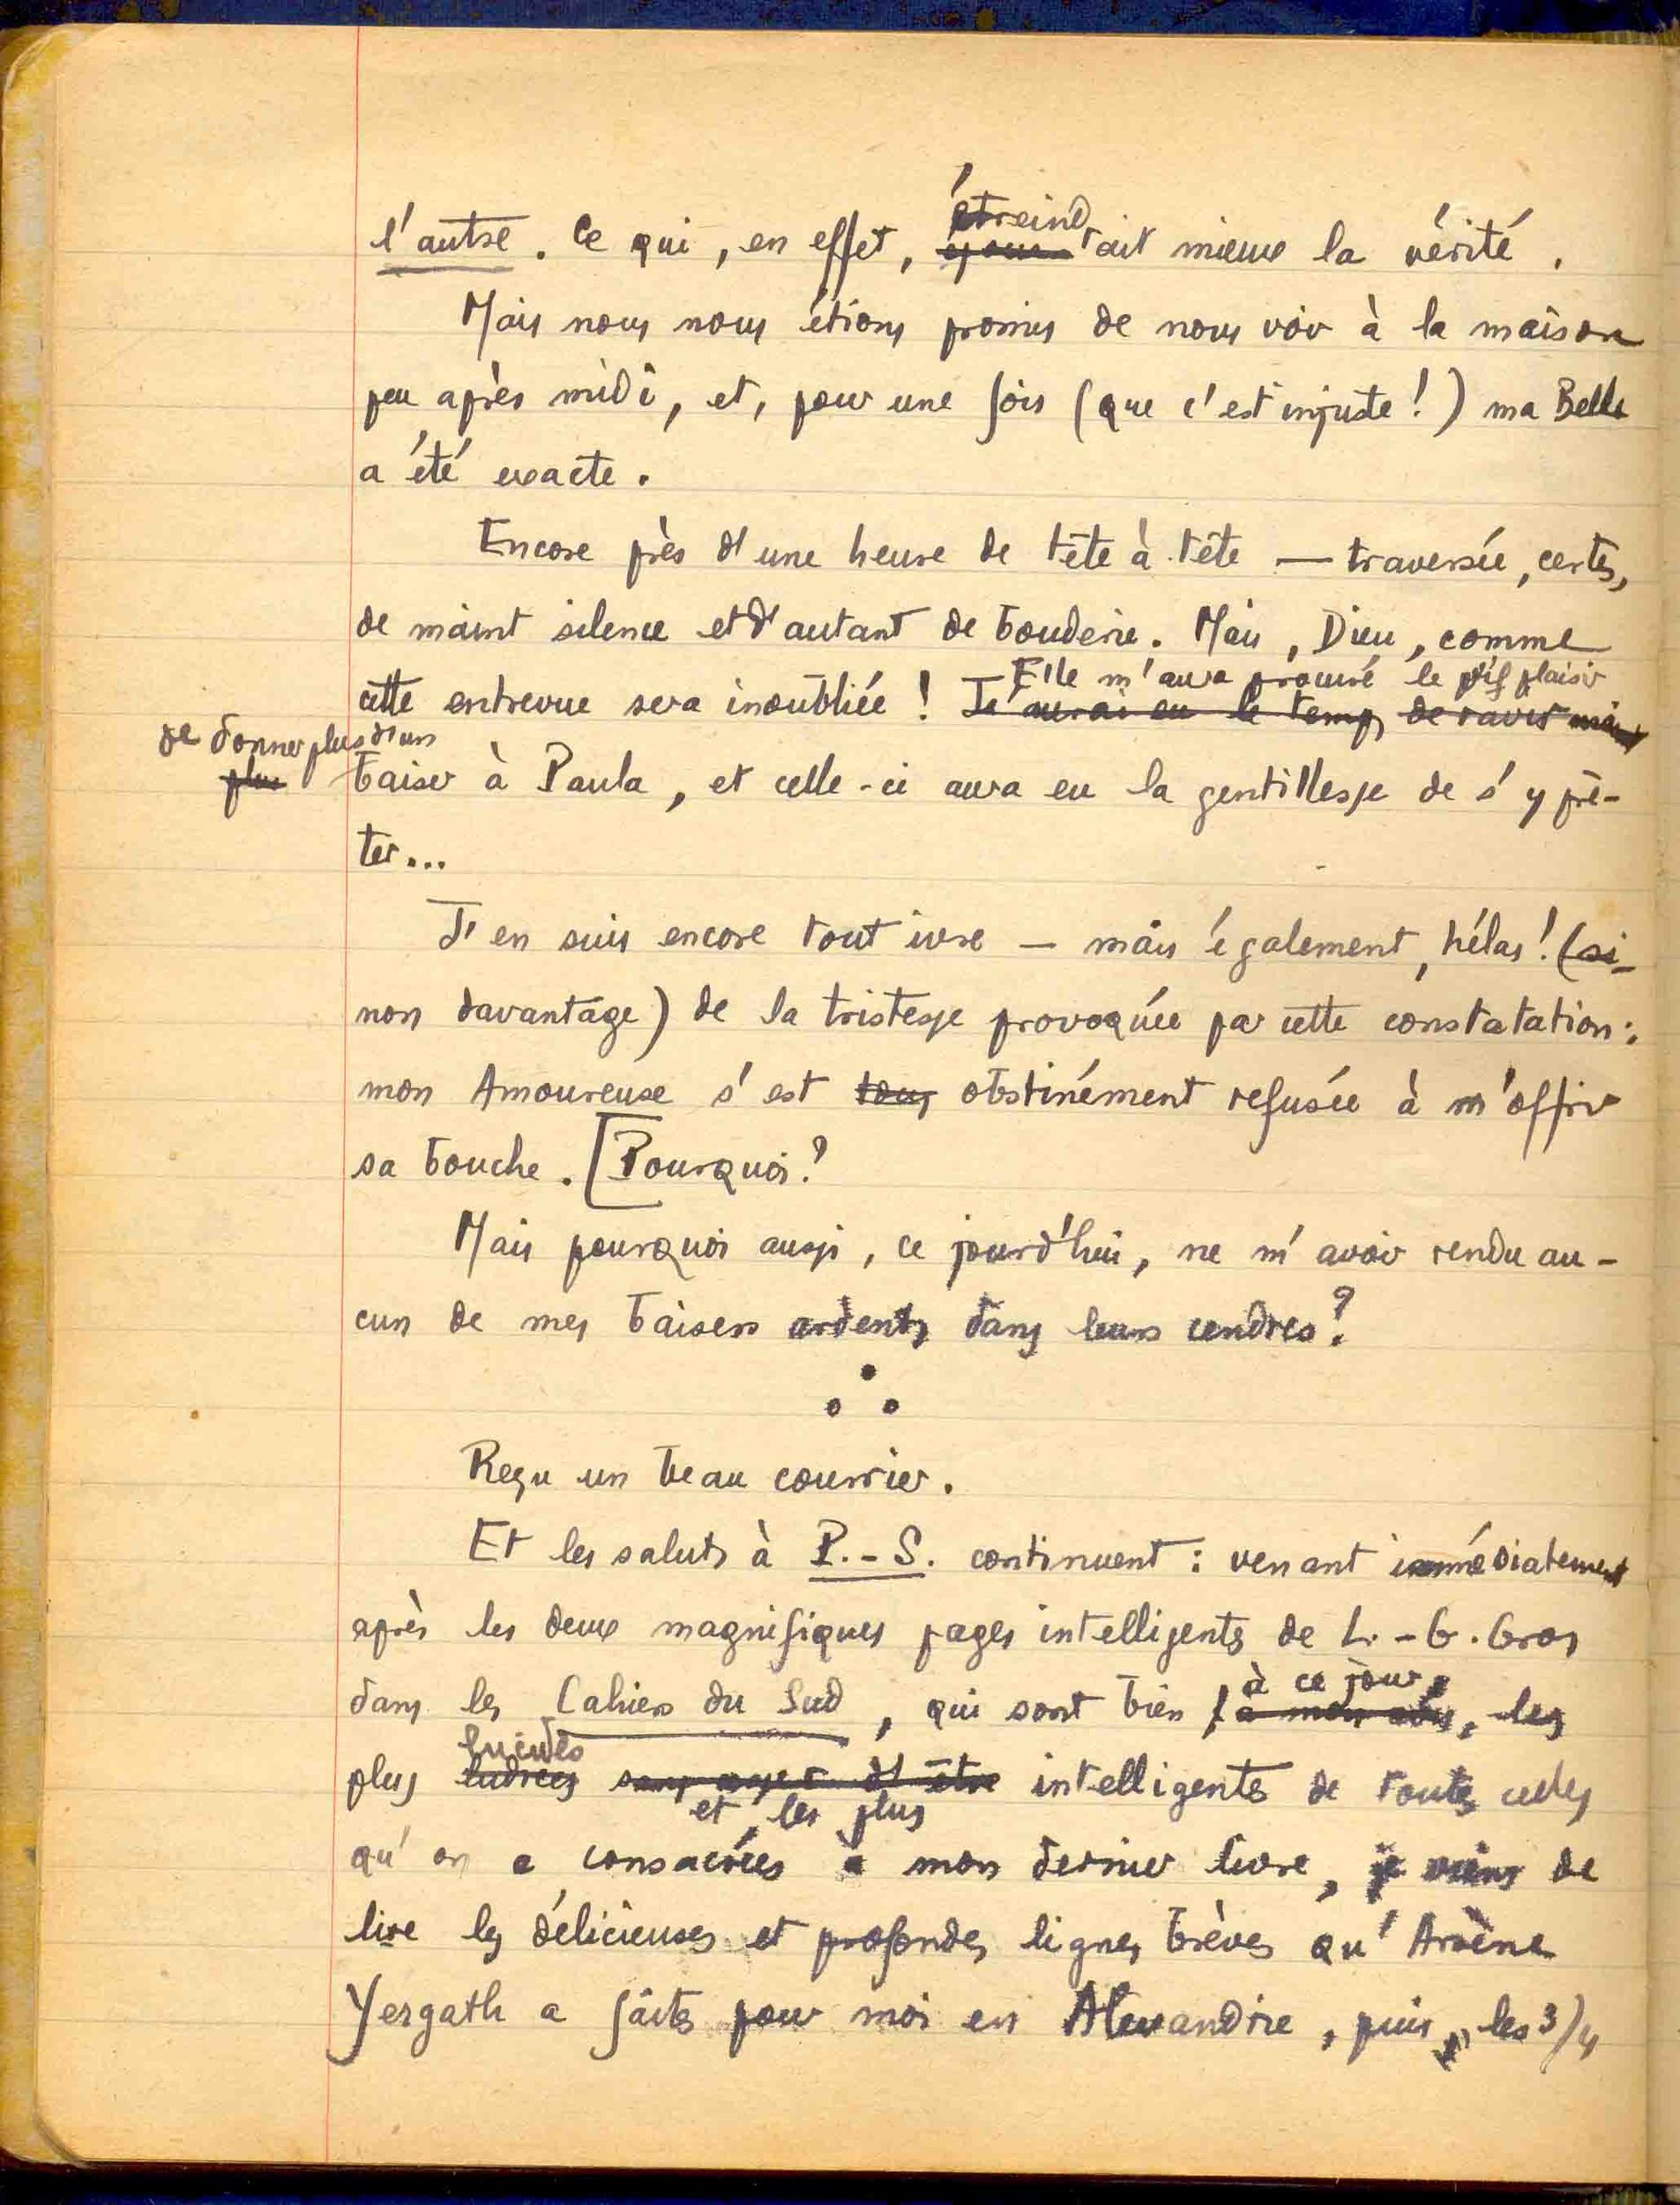 étreind
l'autre. Ce qui, en effet, rait mieux la vérité.
Mais nous nous étions promis de nous voir à la maison
peu après midi, et, pour une fois (que c'est injuste!) ma Belle
a été exacte.
Encore près d'une heure de tête à tête — traversée, certes,
de maint silence et d'autant de bouderie. Mais, Dieu, comme
Elle m'aura procuré le vif plaisir
cette entrevue sera inoubliée ! J'aurai eu le temps de ravir maint
de donner plus d'un
plus baiser à Paula, et celle-ci aura eu la gentillesse de s'y prê-
ter...
J'en suis encore tout ivre — mais également, hélas! (si-
non davantage) de la tristesse provoquée par cette constatation:
mon Amoureuse s'est tous obstinément refusée à m'offrir
sa bouche. [Pourquoi?
Mais pourquoi aussi, ce jourd'hui, ne m'avoir rendu au-
cun de mes baisers ardents dans leurs cendres?
Reçu un beau courrier.
Et les saluts à P.-S. continuent : venant immédiatement
après les deux magnifiques pages intelligentes de L.-G. Gros
à ce jour,
dans les Cahiers du Sud, qui sont bien à mon avis, les
lucides
plus intelligentes de toutes celles
et les plus
qu'on a consacrées à mon dernier livre, je viens de
lire les délicieuses et profondes lignes brèves qu'Arsène
Yergath a faites pour moi en Alexandrie, puis, les 3/4